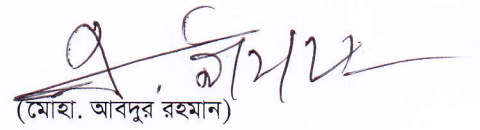 (মোহা. আবদুর রহমান)